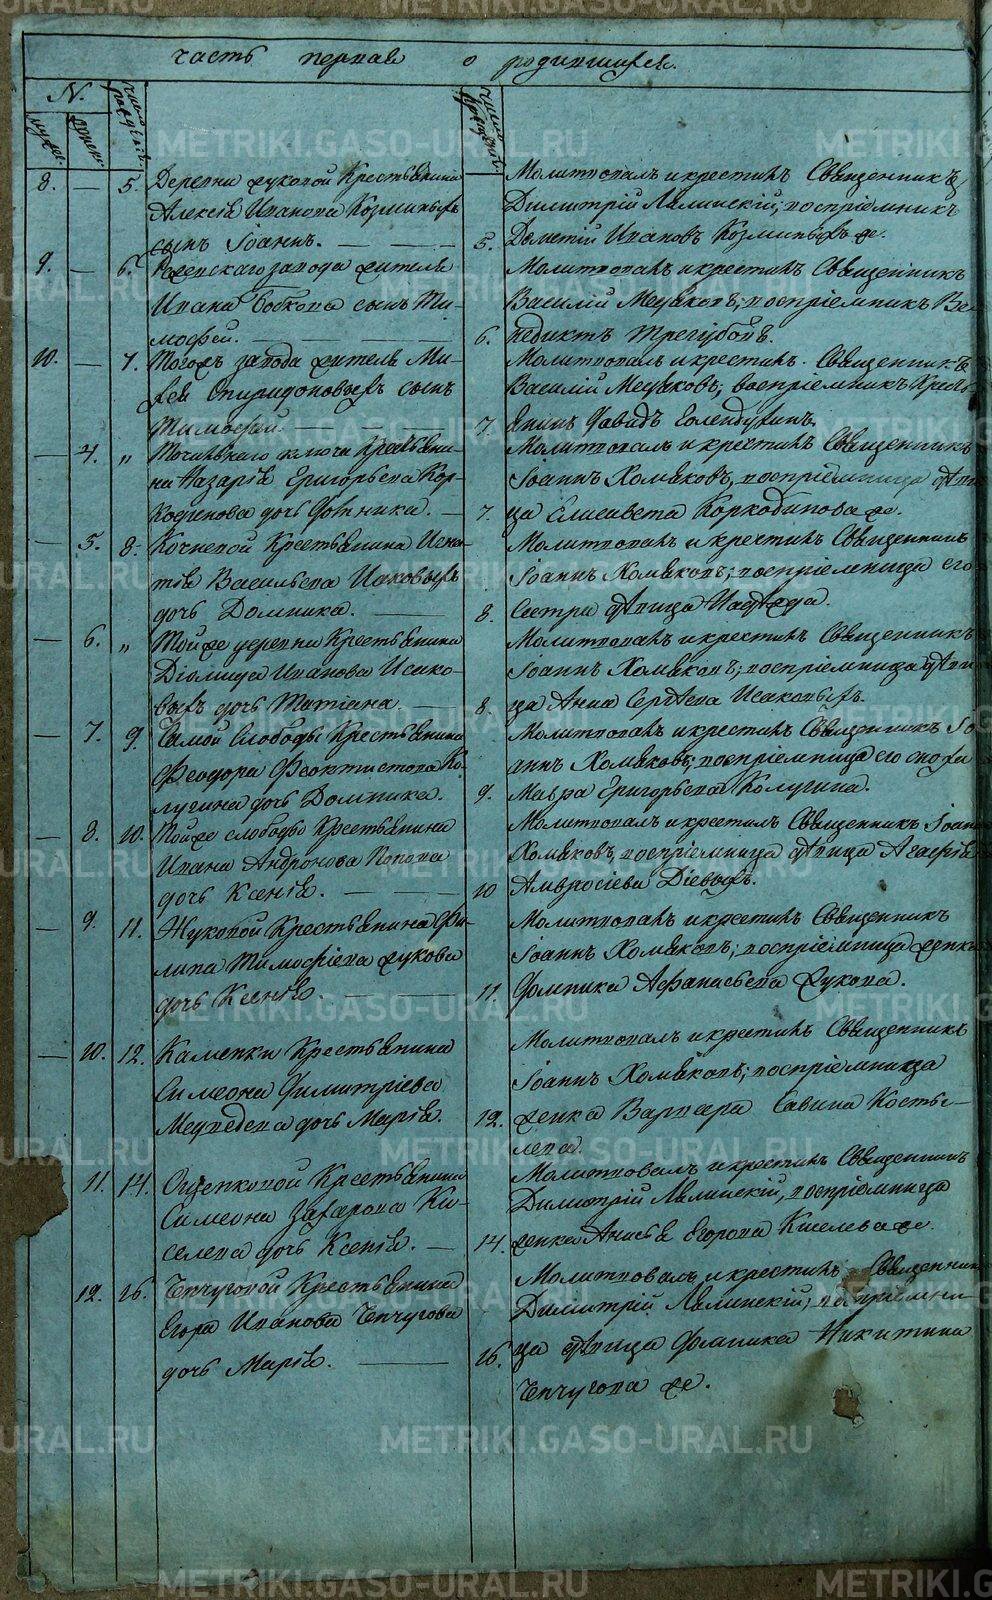 часть первая о родившихся.
N.
число рожденія
число крещенія
мужес. женск.
8. — 5. Деревни Жуковой Крестьянина
Алексѣя Иванова Козминыхъ
сынъ Іоаннъ.
Молитвовалъ и крестилъ Священникъ
Димитрій Ляпинскій; воспріемникъ
5. Дометій Ивановъ Козминыхъ же.
9. — 6. Ревенскаго завода житель
Ивана Бобкова сынъ Ти-
мофей.
Молитвовалъ и крестилъ Священникъ
Василій Медяковъ; воспріемникъ Ве-
6. недиктъ Трегубовъ.
10. — 7. Тогожъ завода житель Ми-
хей Спиридоновыхъ сынъ
Тимофей
Молитвовалъ и крестилъ Священникъ
Василій Медяковъ; воспріемникъ Кресть
7. янинъ Давидъ
— 4. „ Точильнаго ключа Крестьяни-
на Назарія Григорьева Кор-
кодинова дочь Фотиника.
Молитвовалъ и крестилъ Священникъ
Іоаннъ Хомяковъ, воспріемница дѣви
7. ца Елисавета Коркодинова же.
— 5. 8. Кочневой Крестьянина Игна-
тія Васильева Исаковыхъ
дочь Домника.
Молитвовалъ и крестилъ Священникъ
Іоаннъ Хомяковъ; воспріемница его
8. Сестра дѣвица Надежда.
— 6. „ Тойже деревни Крестьянина
Діомида Иванова Исако-
выхъ дочь Татіана.
Молитвовалъ и крестилъ Священникъ
Іоаннъ Хомяковъ; воспріемница дѣви
8. ца Анна Сергѣева Исаковыхъ.
— 7. 9. Самой Слободы Крестьянина
Феодора Феоктистова Ка-
лугина дочь Домника.
Молитвовалъ и крестилъ Священникъ Іо
аннъ Хомяковъ; воспріемница его сноха
9. Мавра Григорьева Калугина.
— 8. 10. Тойже слободы Крестьянина
Ивана Андронова Попова
дочь Ксенія.
Молитвовалъ и крестилъ Священникъ Іоаннъ
Хомяковъ, воспріемница дѣвица Агафія
10 Амвросіева Діевыхъ.
— 9. 11. Жуковой Крестьянина Фи-
липа Тимофіева Жукова
дочь Ксенія.
Молитвовалъ и крестилъ Священникъ
Іоаннъ Хомяковъ; воспріемница женка
11. Домника Афанасьева Жукова.
— 10. 12. Каменки Крестьянина
Симеона Димитріева
Медведева дочь Марія.
Молитвовалъ и крестилъ Священникъ
Іоаннъ Хомяковъ; воспріемница
12. женка Варвара Савина Косты-
лева.
11. 14. Ощепковой Крестьянина
Симеона Захарова Ки-
селева дочь Ксенія.
Молитвовалъ и крестилъ Священникъ
Димитрій Ляпинскій, воспріемница
14. женка Анисья Егорова Киселева же.
12. 16. Чепчуговой Крестьянина
Егора Иванова Чепчугова
дочь Марія.
Молитвовалъ и крестилъ Священник
Димитрій Ляпинскій; воспріемни-
16. ца дѣвица Домника Никитина
Чепчугова же.
METRIKI.GASO-URAL.RU